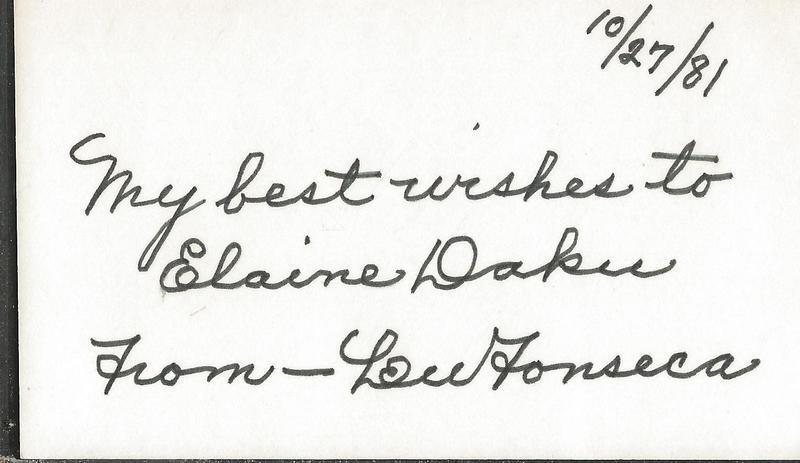 10/27/81
My best wishes to
Elaine Daku
From - Lew Fonseca